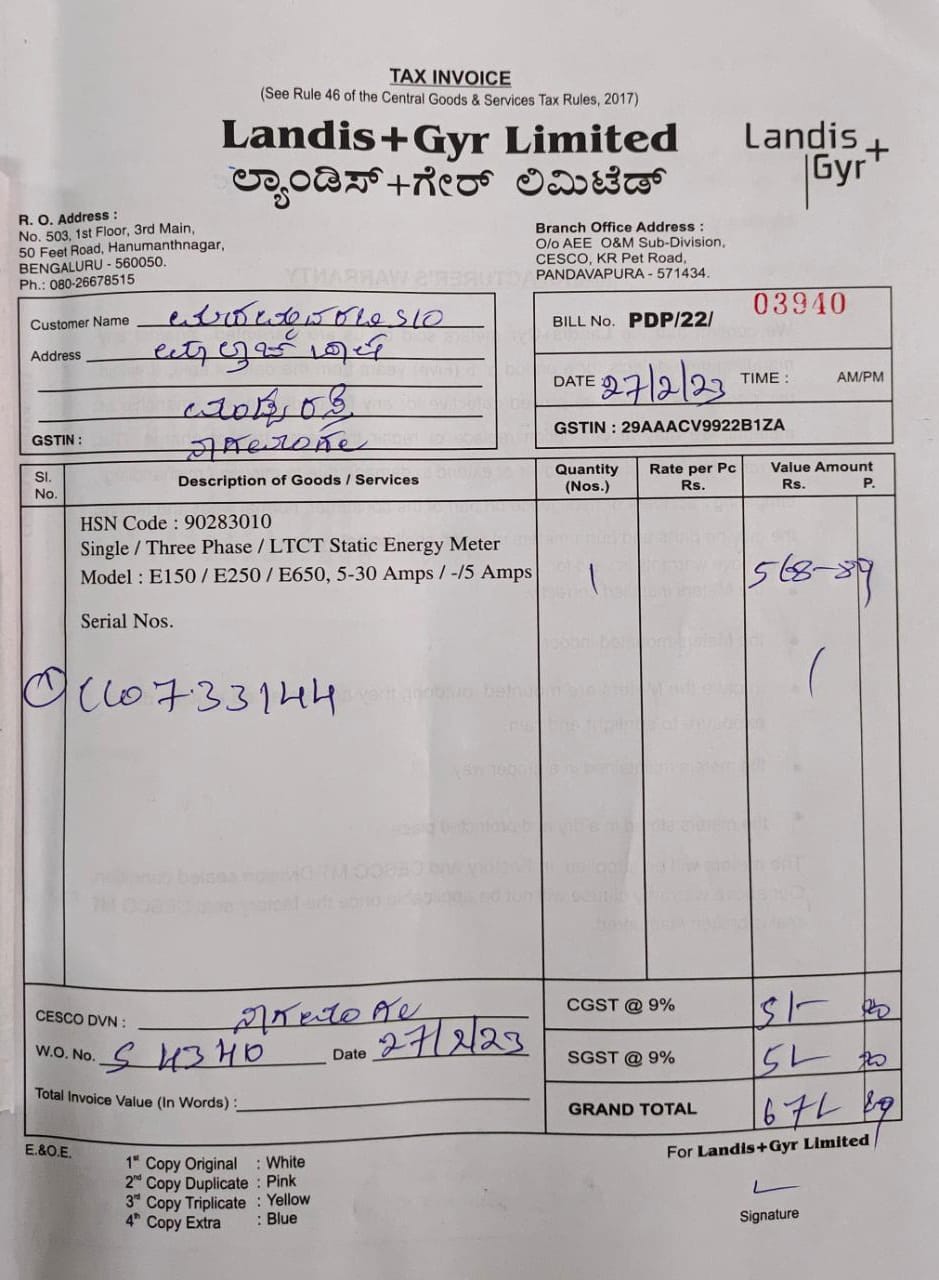 TAX INVOICE
(See Rule 46 of the Central Goods & Services Tax Rules, 2017)
Landis+Gyr Limited
Landis+
Gyr
ಲ್ಯಾಂಡಿಸ್+ಗೇರ್ ಲಿಮಿಟೆಡ್
R. O. Address :
No. 503, 1st Floor, 3rd Main,
50 Feet Road, Hanumanthnagar,
BENGALURU - 560050.
Ph.: 080-26678515
Branch Office Address :
O/o AEE O&M Sub-Division,
CESCO, KR Pet Road,
PANDAVAPURA - 571434.
Customer Name
Address
GSTIN :
BILL No. PDP/22/ 03940
DATE 27/2/23 TIME : AM/PM
GSTIN : 29AAACV9922B1ZA
Sl. No. Description of Goods / Services Quantity (Nos.) Rate per Pc Rs. Value Amount Rs. P.
HSN Code : 90283010
Single / Three Phase / LTCT Static Energy Meter
Model : E150 / E250 / E650, 5-30 Amps / -/5 Amps 1 568-89
Serial Nos.
① 733144
CESCO DVN :
CGST @ 9% 51-
W.O. No. S 4340 Date 27/2/23
SGST @ 9% 51
Total Invoice Value (In Words) :
GRAND TOTAL 671 89
E.&O.E.
For Landis+Gyr Limited
1st Copy Original : White
2nd Copy Duplicate : Pink
3rd Copy Triplicate : Yellow
4th Copy Extra : Blue
Signature